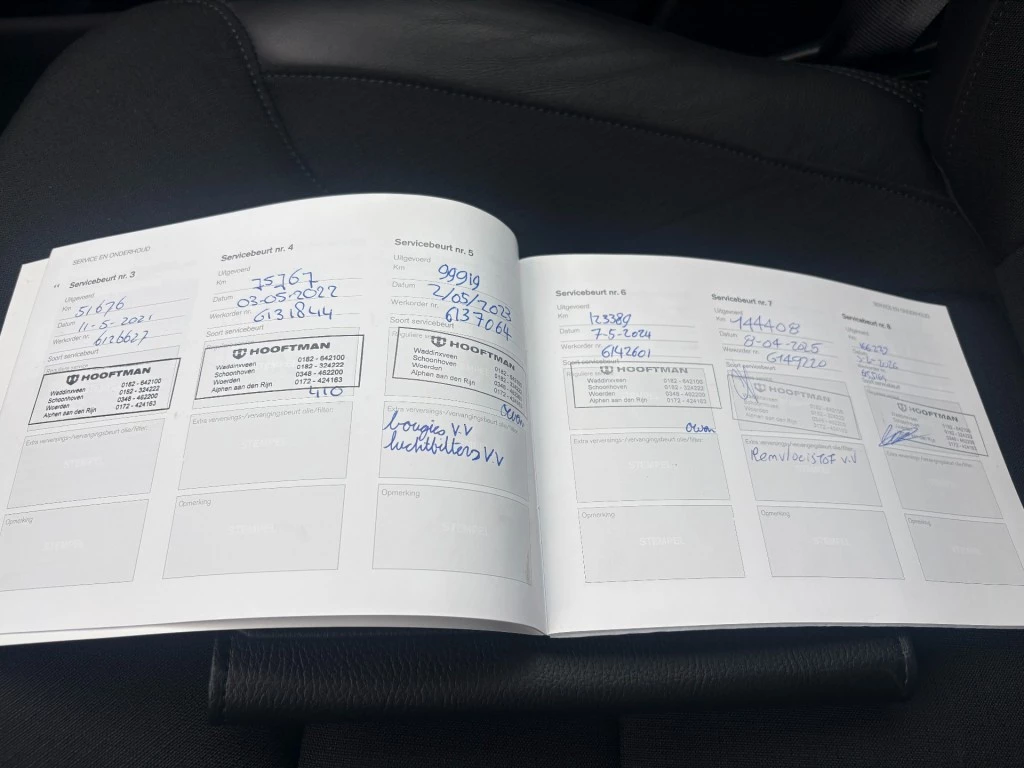 SERVICE EN ONDERHOUD
Servicebeurt nr. 3
Uitgevoerd
Km 51676
Datum 11-5-2021
Werkorder nr. 6126627
Soort servicebeurt
HOOFTMAN
Waddinxveen 0182 - 642100
Schoonhoven 0182 - 324222
Woerden 0348 - 462200
Alphen aan den Rijn 0172 - 424163
Extra verversings-/vervangingsbeurt olie/filter:
Opmerking
STEMPEL
Servicebeurt nr. 4
Uitgevoerd
Km 75767
Datum 03-05-2022
Werkorder nr. 6131844
Soort servicebeurt
HOOFTMAN
Waddinxveen 0182 - 642100
Schoonhoven 0182 - 324222
Woerden 0348 - 462200
Alphen aan den Rijn 0172 - 424163
410
Extra verversings-/vervangingsbeurt olie/filter:
Opmerking
STEMPEL
Servicebeurt nr. 5
Uitgevoerd
Km 99919
Datum 2/05/2023
Werkorder nr. 6137064
Soort servicebeurt
Reguliere
HOOFTMAN
Waddinxveen 0182 - 642100
Schoonhoven
Woerden
Alphen aan den Rijn
Owen
Extra verversings-/vervangingsbeurt olie/filter:
bougies V.V
luchtbilters V.V
Opmerking
STEMPEL
Servicebeurt nr. 6
Uitgevoerd
Km 123389
Datum 7-5-2024
Werkorder nr. 6142601
Soort servicebeurt
HOOFTMAN
Waddinxveen 0182 - 642100
Schoonhoven 0182 - 324222
Woerden 0348 - 462200
Alphen aan den Rijn 0172 - 424163
Owen
Extra verversings-/vervangingsbeurt olie/filter:
STEMPEL
Opmerking
STEMPEL
Servicebeurt nr. 7
Uitgevoerd
Km 144408
Datum 8-04-2025
Werkorder nr. 6149220
Soort servicebeurt
HOOFTMAN
Extra verversings-/vervangingsbeurt olie/filter:
Remvloeistof v.v
Opmerking
STEMPEL
SERVICE EN ONDERHOUD
Servicebeurt nr. 8
Uitgevoerd
HOOFTMAN
Extra verversings-/vervangingsbeurt olie/filter:
Opmerking